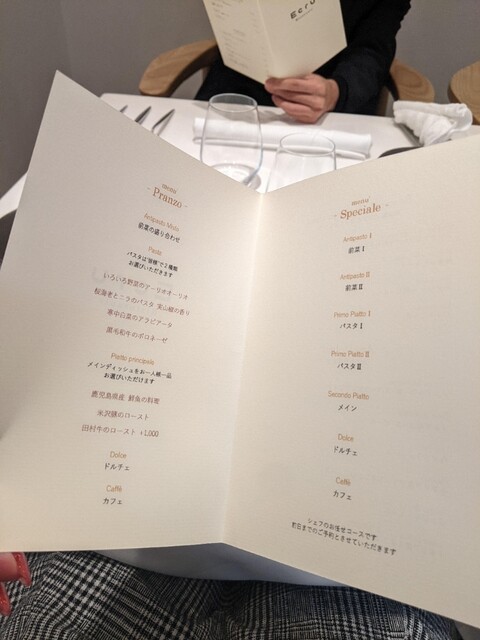 Ecru
menu
- Pranzo -
Antipasto Misto
前菜の盛り合わせ
Pasta
パスタは"皆様"で2種類
お選びいただきます
いろいろ野菜のアーリオオーリオ
桜海老とニラのパスタ 実山椒の香り
寒中白菜のアラビアータ
黒毛和牛のボロネーゼ
Piatto principale
メインディッシュをお一人様一品
お選びいただけます
鹿児島県産 鮮魚の料理
米沢豚のロースト
田村牛のロースト +1,000
Dolce
ドルチェ
Caffè
カフェ
menu
- Speciale -
Antipasto Ⅰ
前菜Ⅰ
Antipasto Ⅱ
前菜Ⅱ
Primo Piatto Ⅰ
パスタⅠ
Primo Piatto Ⅱ
パスタⅡ
Secondo Piatto
メイン
Dolce
ドルチェ
Caffè
カフェ
シェフのお任せコースです
前日までのご予約とさせていただきます